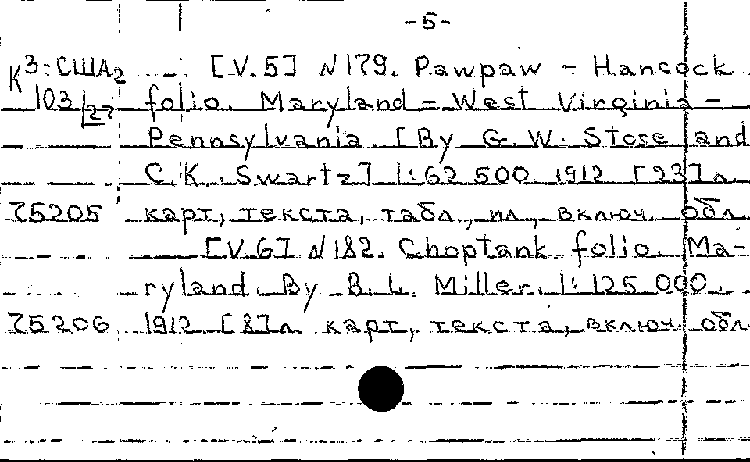 -5-
К3:США2 [V.5] N179. Pawpaw - Hancock
103/27 folio. Maryland - West Virginia -
Pennsylvania [By G.W. Stose and
C.K. Swartz] 1:62 500 1912 [23] л.
75205 карт, текста, табл., ил, включ. обл
[V.6] N182. Choptank folio. Ma-
ryland. By B.L. Miller. 1:125 000.
75206 1912 [8] л карт, текста, включ обл